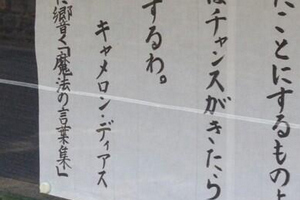 たことにするものよ
はチャンスがきたら
するわ。
キャメロン・ディアス
に響く「魔法の言葉集」